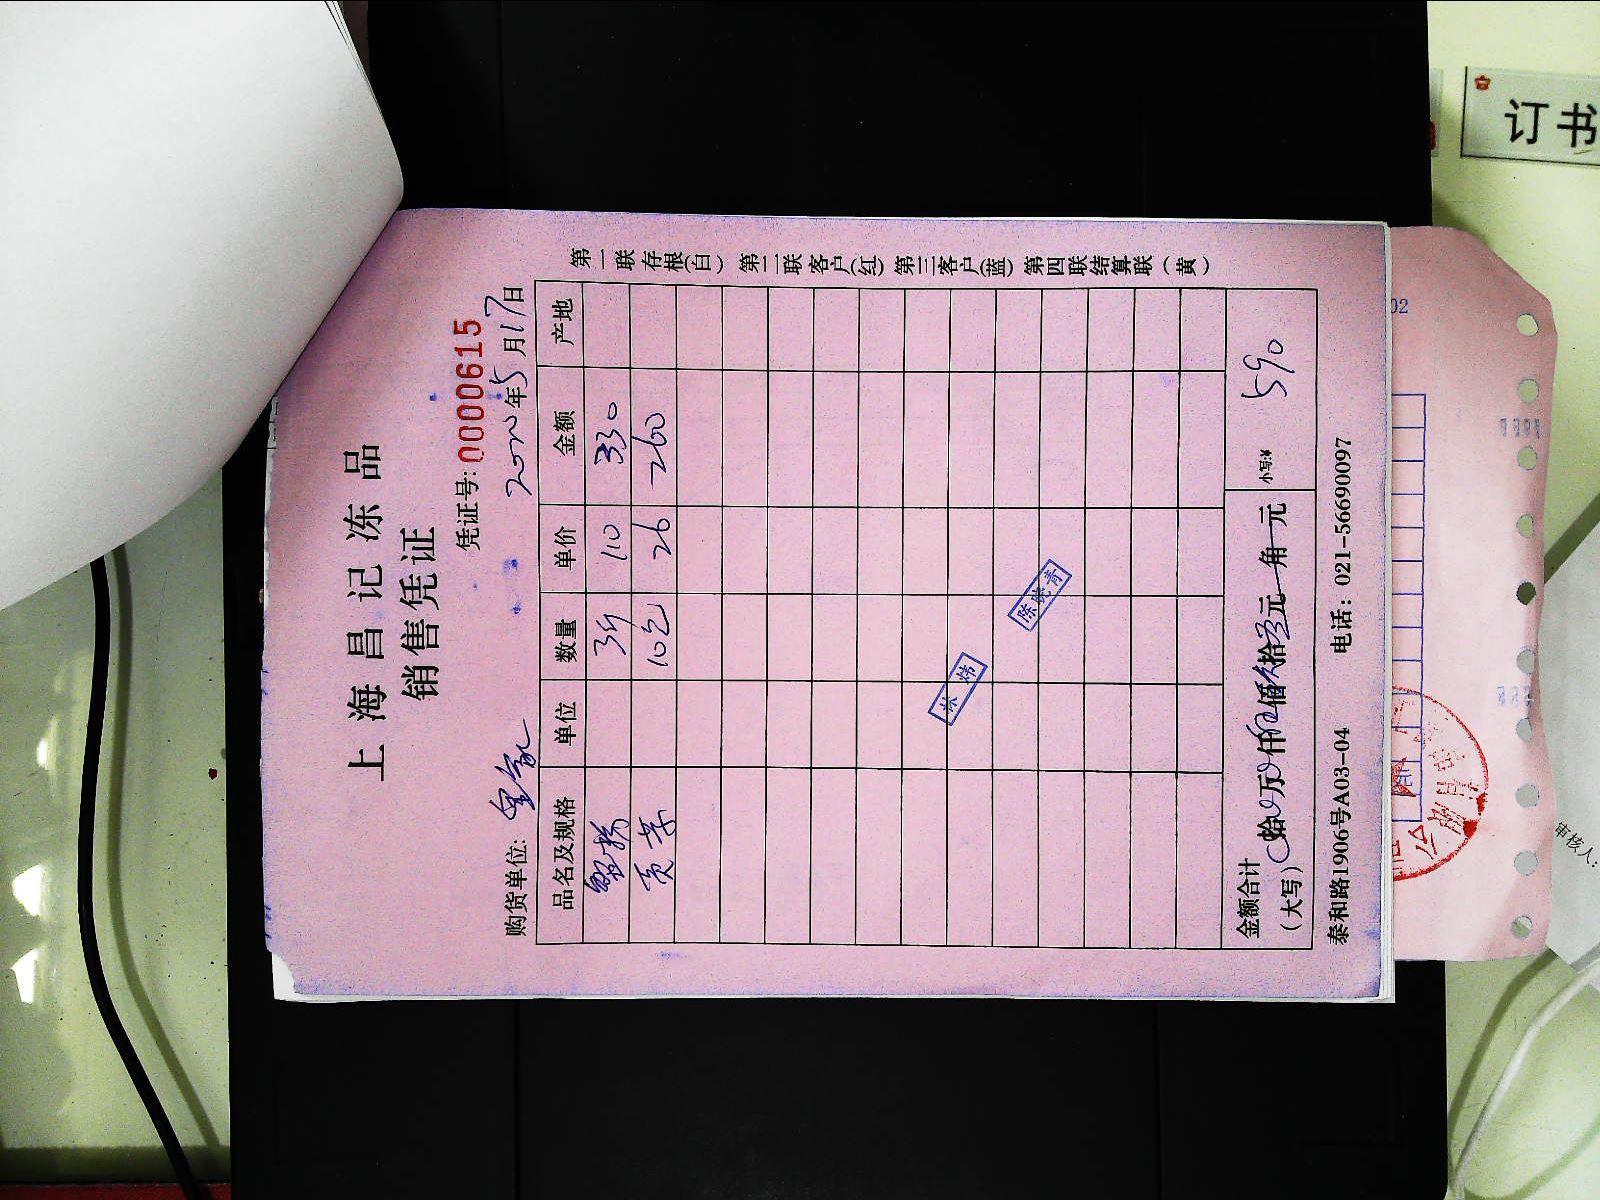 上海昌记冻品
销售凭证
凭证号:0000615
购货单位: 2020年5月17日
品名及规格 单位 数量 单价 金额 产地
3斤 110 330
贡菜 10包 26 260
陈晓青
金额合计
(大写) 拾 万 仟 佰 拾 元 角 元 小写:¥ 590
泰和路1906号A03-04 电话: 021-56690097
第一联存根(白) 第二联客户(红) 第三客户(蓝) 第四联结算联(黄)
订书
02
审核人: